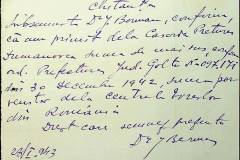 Chitanța
Subsemnatul Dr Y Berman, confirm,
că am primit de la Casieria Preturei
Dumanovca suma de mai sus conform
ord. Prefecturei Jud. Golta No
din 30 Decembrie 1942, suma pro-
venitor din centrala Evreilor
din România
Drept care semnez prezenta
Dr Y Berman
23/I 943